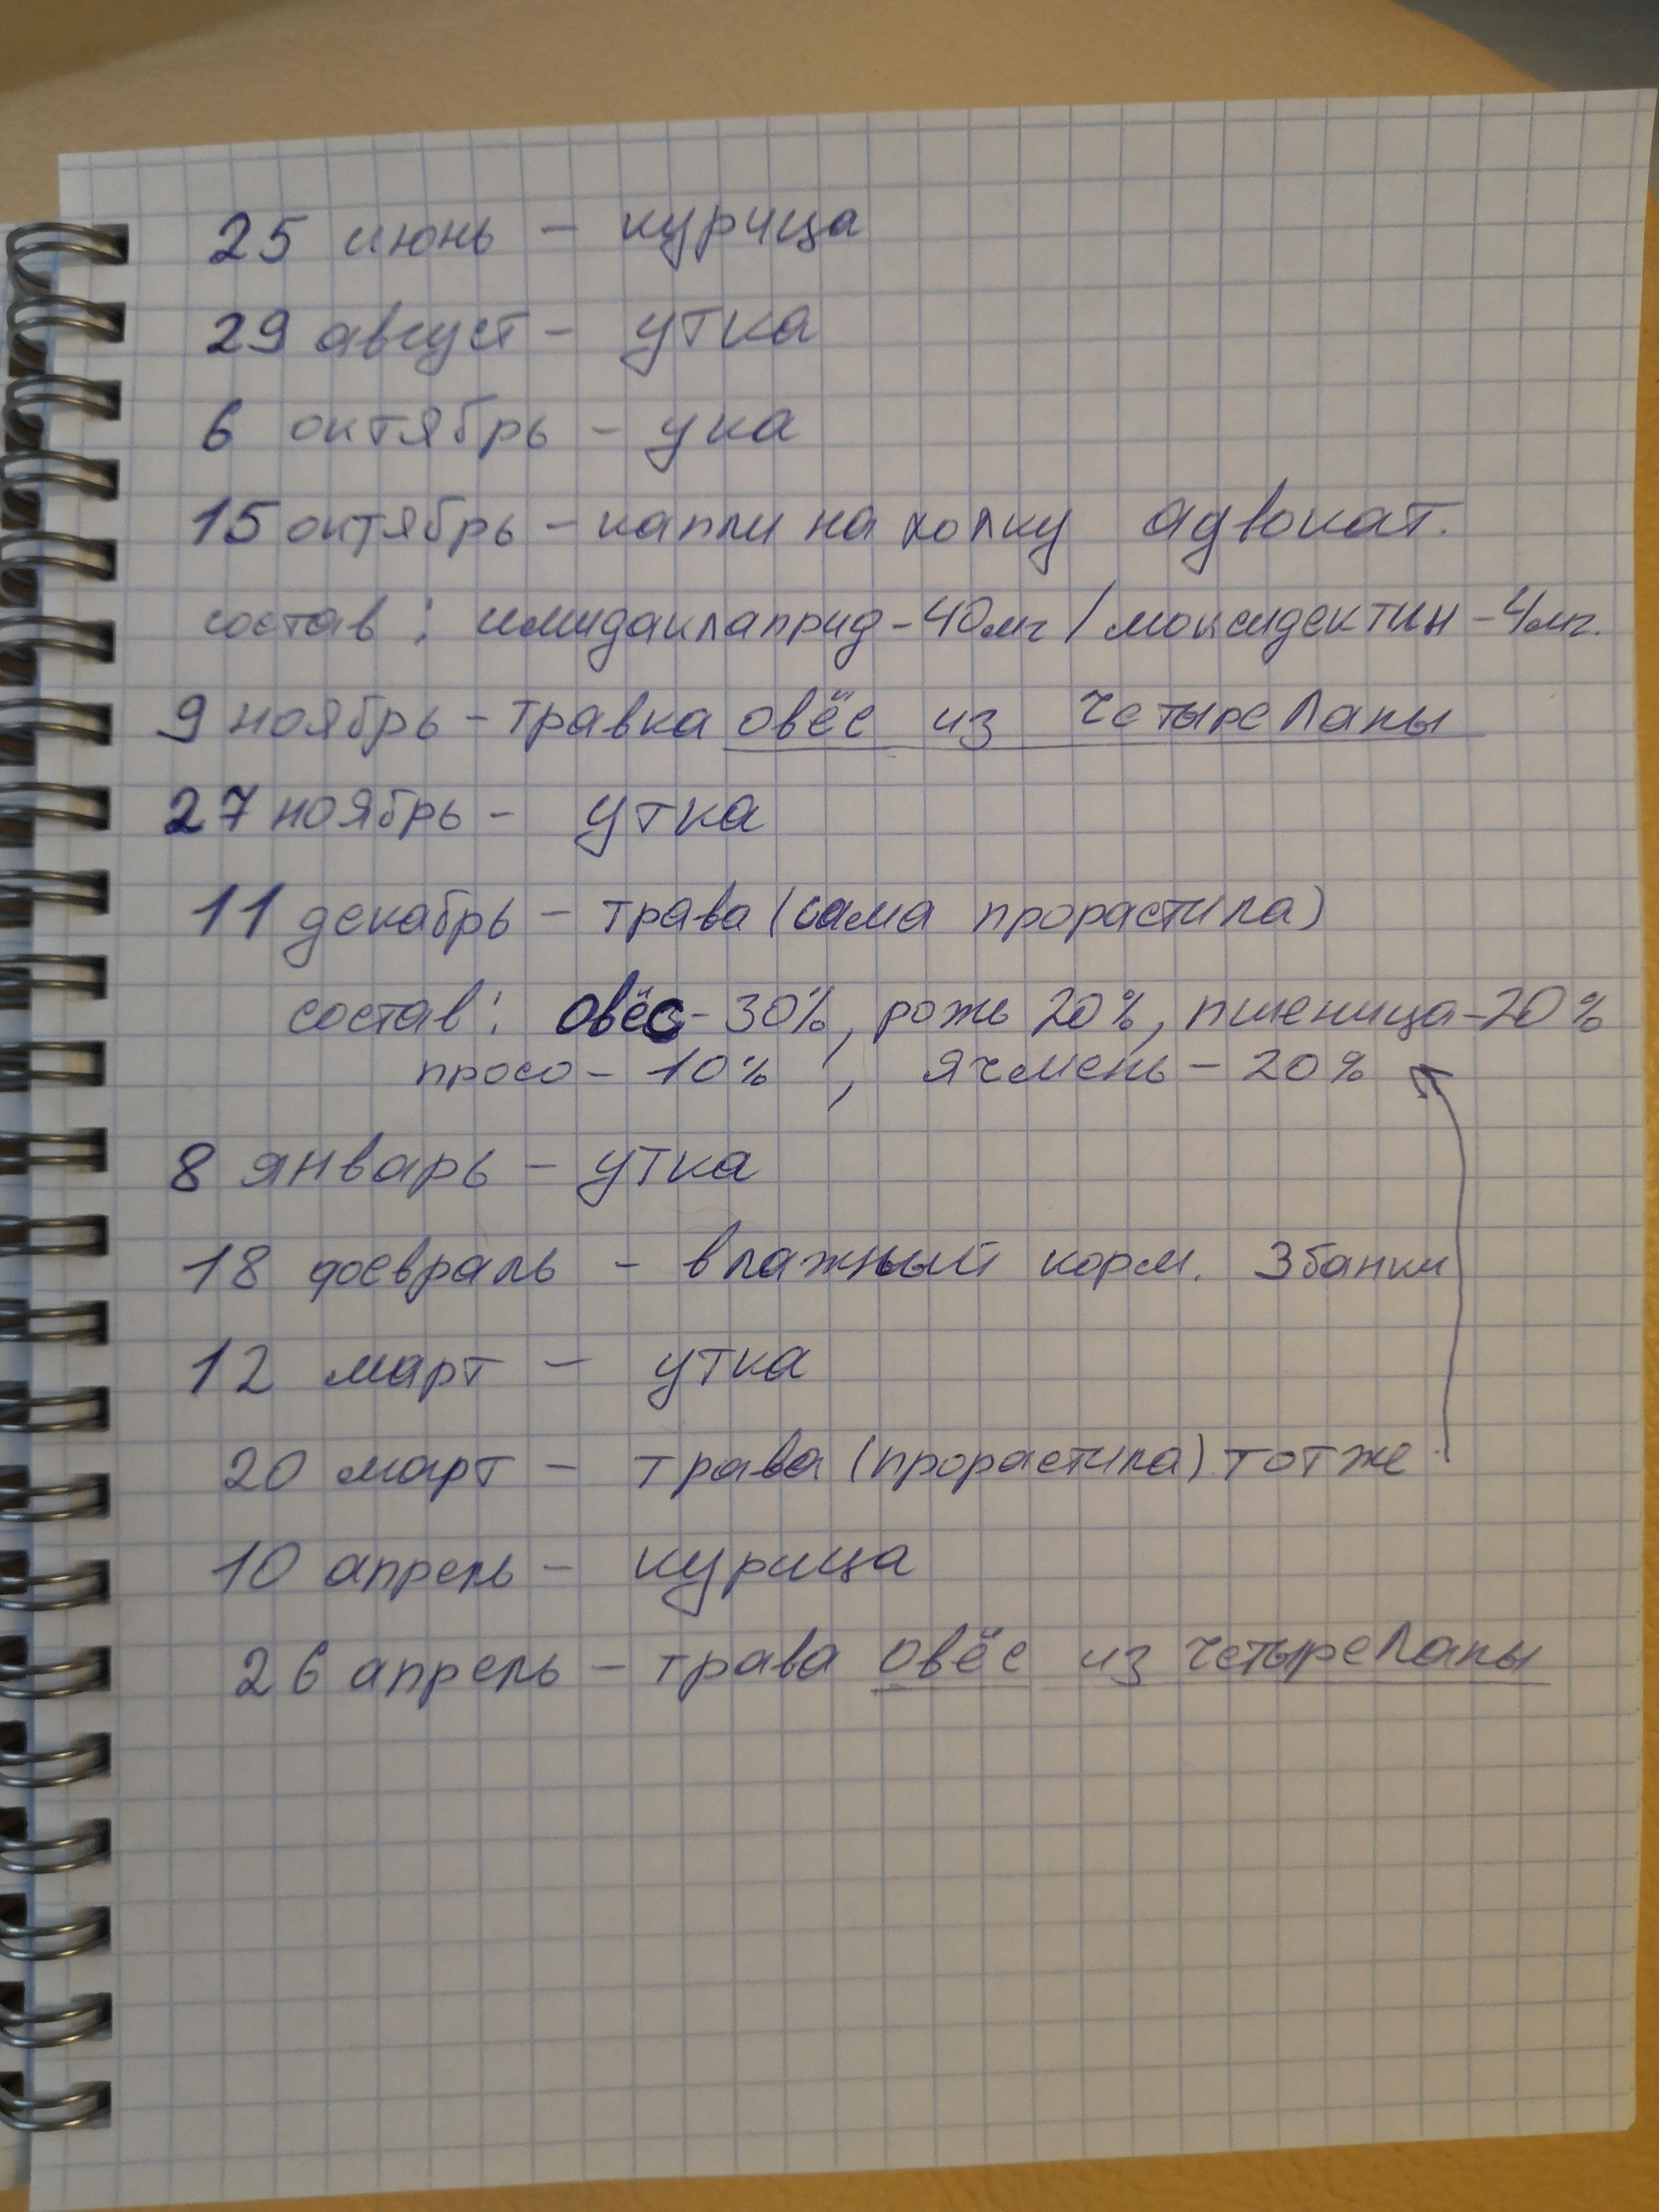 25 июнь - курица
29 август - утка
6 октябрь - ука
15 октябрь - капли на холку адвокат.
состав: имидаклаприд - 40мг / моксидектин - 4мг.
9 ноябрь - травка овёс из четыре Лапы
27 ноябрь - утка
11 декабрь - трава (сама прорастила)
состав: овёс - 30%, рожь 20%, пшеница - 20%
просо - 10%, ячмень - 20%
8 январь - утка
18 февраль - влажный корм. 3 банки
12 март - утка
20 март - трава (прорастила) тот же
10 апрель - курица
26 апрель - трава овёс из четыре Лапы